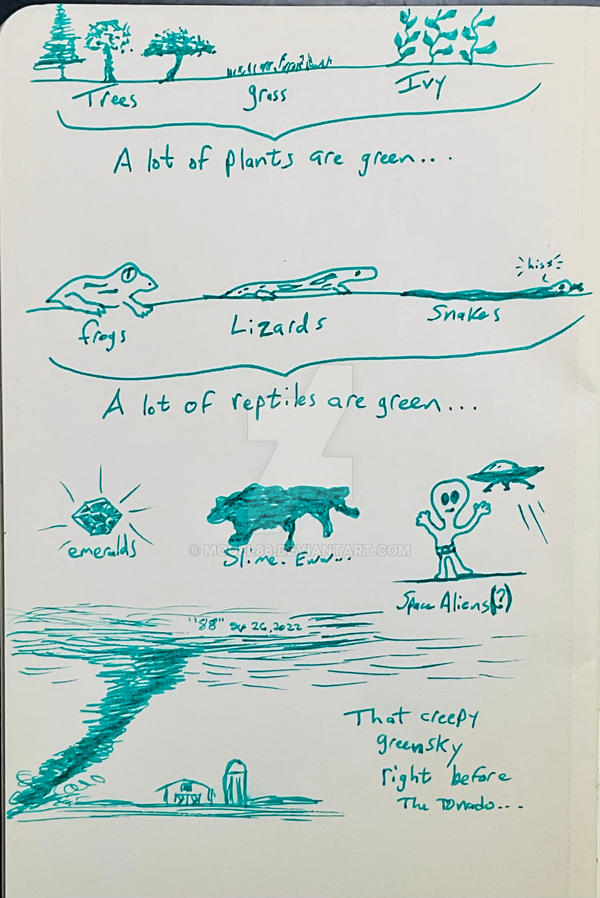 Trees grass Ivy
A lot of plants are green...
hiss
frogs Lizards Snakes
A lot of reptiles are green...
emeralds Slime. Eww... Space Aliens(?)
"88" Sep 26, 2022
That creepy
green sky
right before
The Tonado...